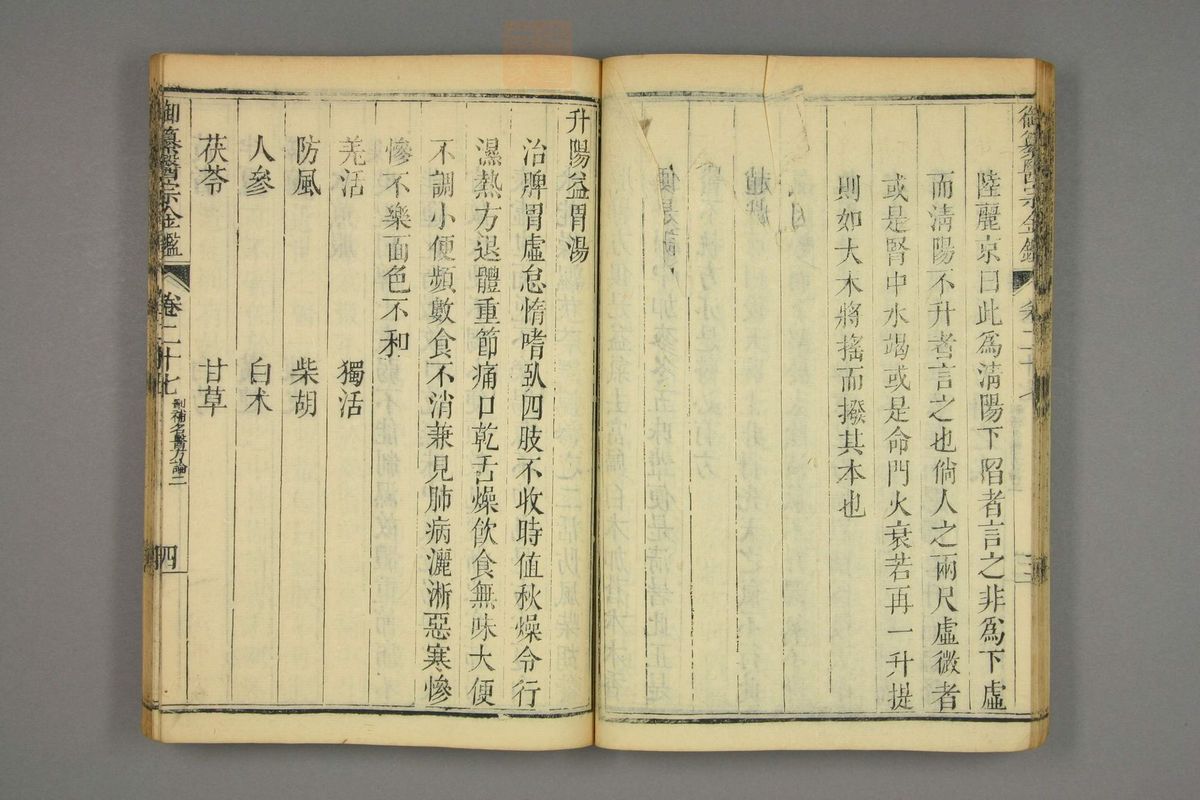 御纂醫宗金鑑
卷二十七
三
陸麗京曰此為清陽下陷者言之非為下虛
而清陽不升者言之也倘人之兩尺虛微者
或是腎中水竭或是命門火衰若再一升提
則如大木將搖而撥其本也
升陽益胃湯
治脾胃虛怠惰嗜臥四肢不收時值秋燥令行
濕熱方退體重節痛口乾舌燥飲食無味大便
不調小便頻數食不消兼見肺病灑淅惡寒慘
慘不樂面色不和
羌活 獨活
防風 柴胡
人參 白术
茯苓 甘草
御纂醫宗金鑑
卷二十七
刪補名醫方論二
四